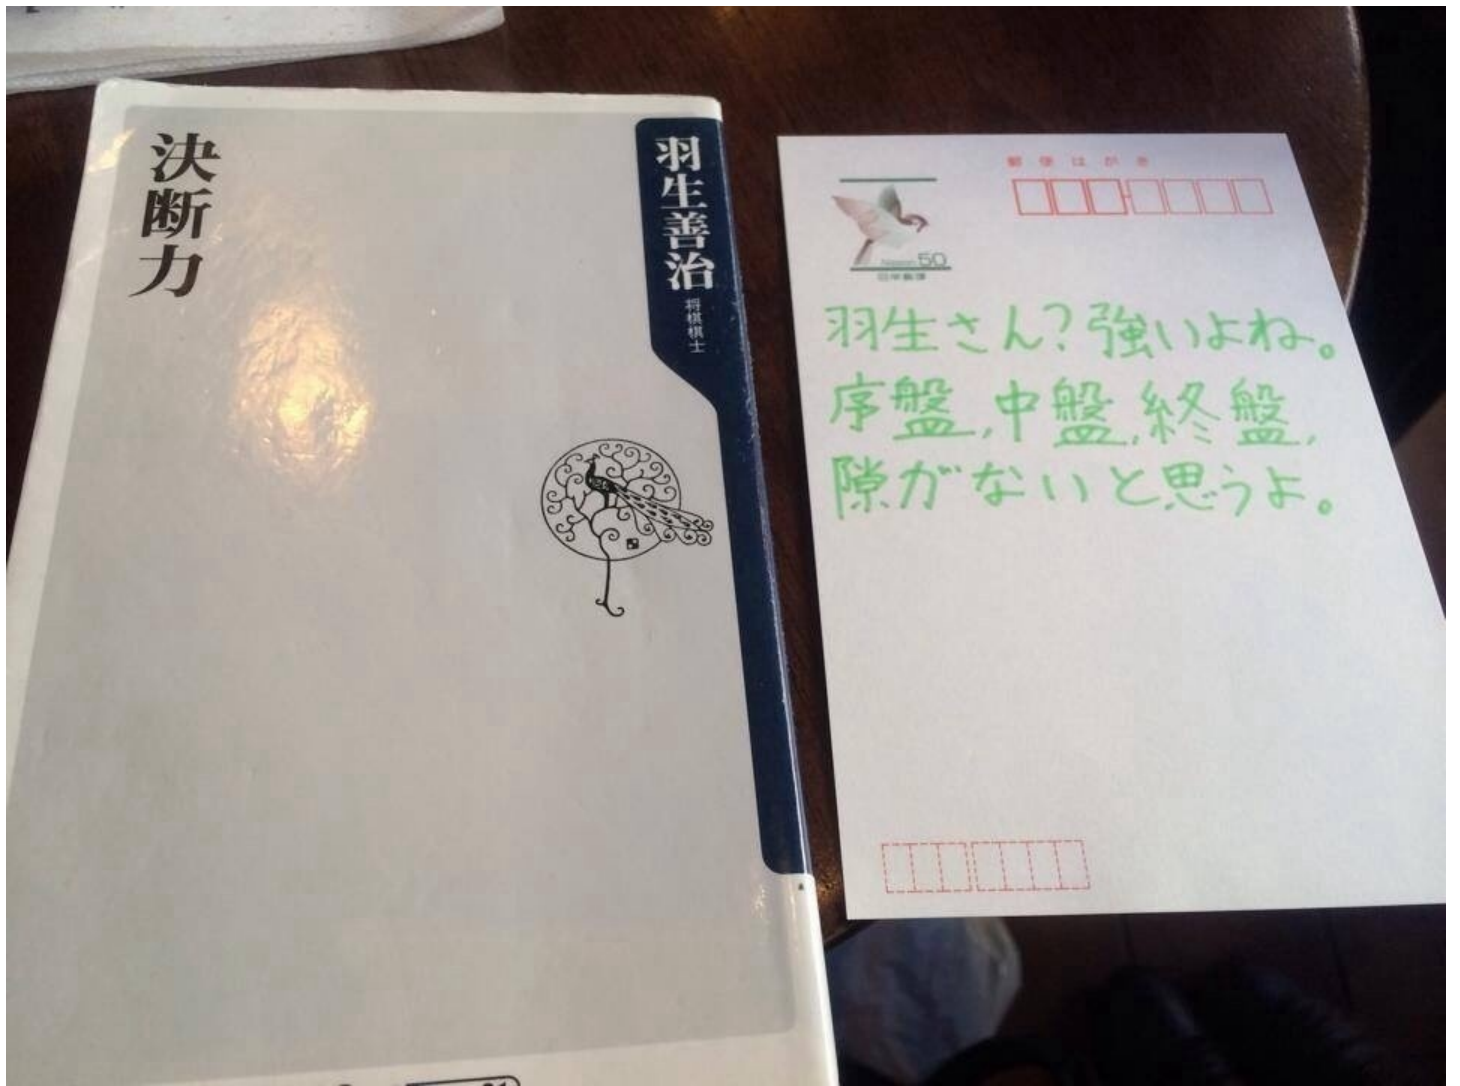 決断力
羽生善治
将棋棋士
郵便はがき
NIPPON 50
日本郵便
羽生さん?強いよね。
序盤,中盤,終盤,
隙がないと思うよ。